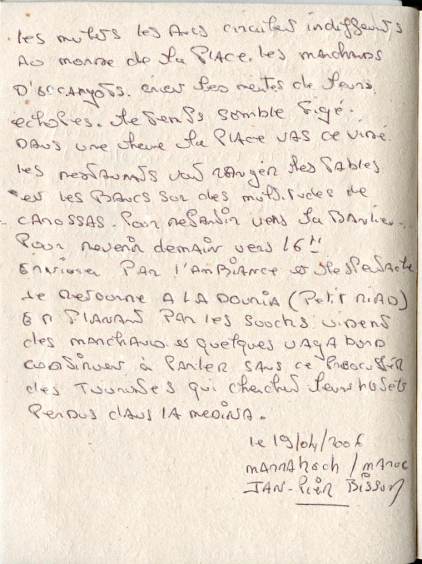 les mulets les ânes circules indifferents
Au monde de la PLACE. les marchands
D'escargots. crier les mentes de leurs
echopes. le temps semble figé.
DANS une heure la PLACE VAS ce vidé.
les restaurants vont ranger les tables
et les BANCS sur des multitudes de
CAROSSAS. Pour repartir vers la Banlieu
Pour revenir demain vers 16 H
Enivrer PAR l'AMBIANCE et le spectacle
Je retourne A LA DOUNIA (Petit RIAD)
EN FLANANT PAR les souks. vident
des marchand et quelques vagabond
continuent à PARLER SANS ce préocuper
des Touristes qui cherches leurs hotels
Perdus dans LA MEDINA.
le 19/04/2006
MARRAKECH / MAROC
JAN-Pièr BISSON